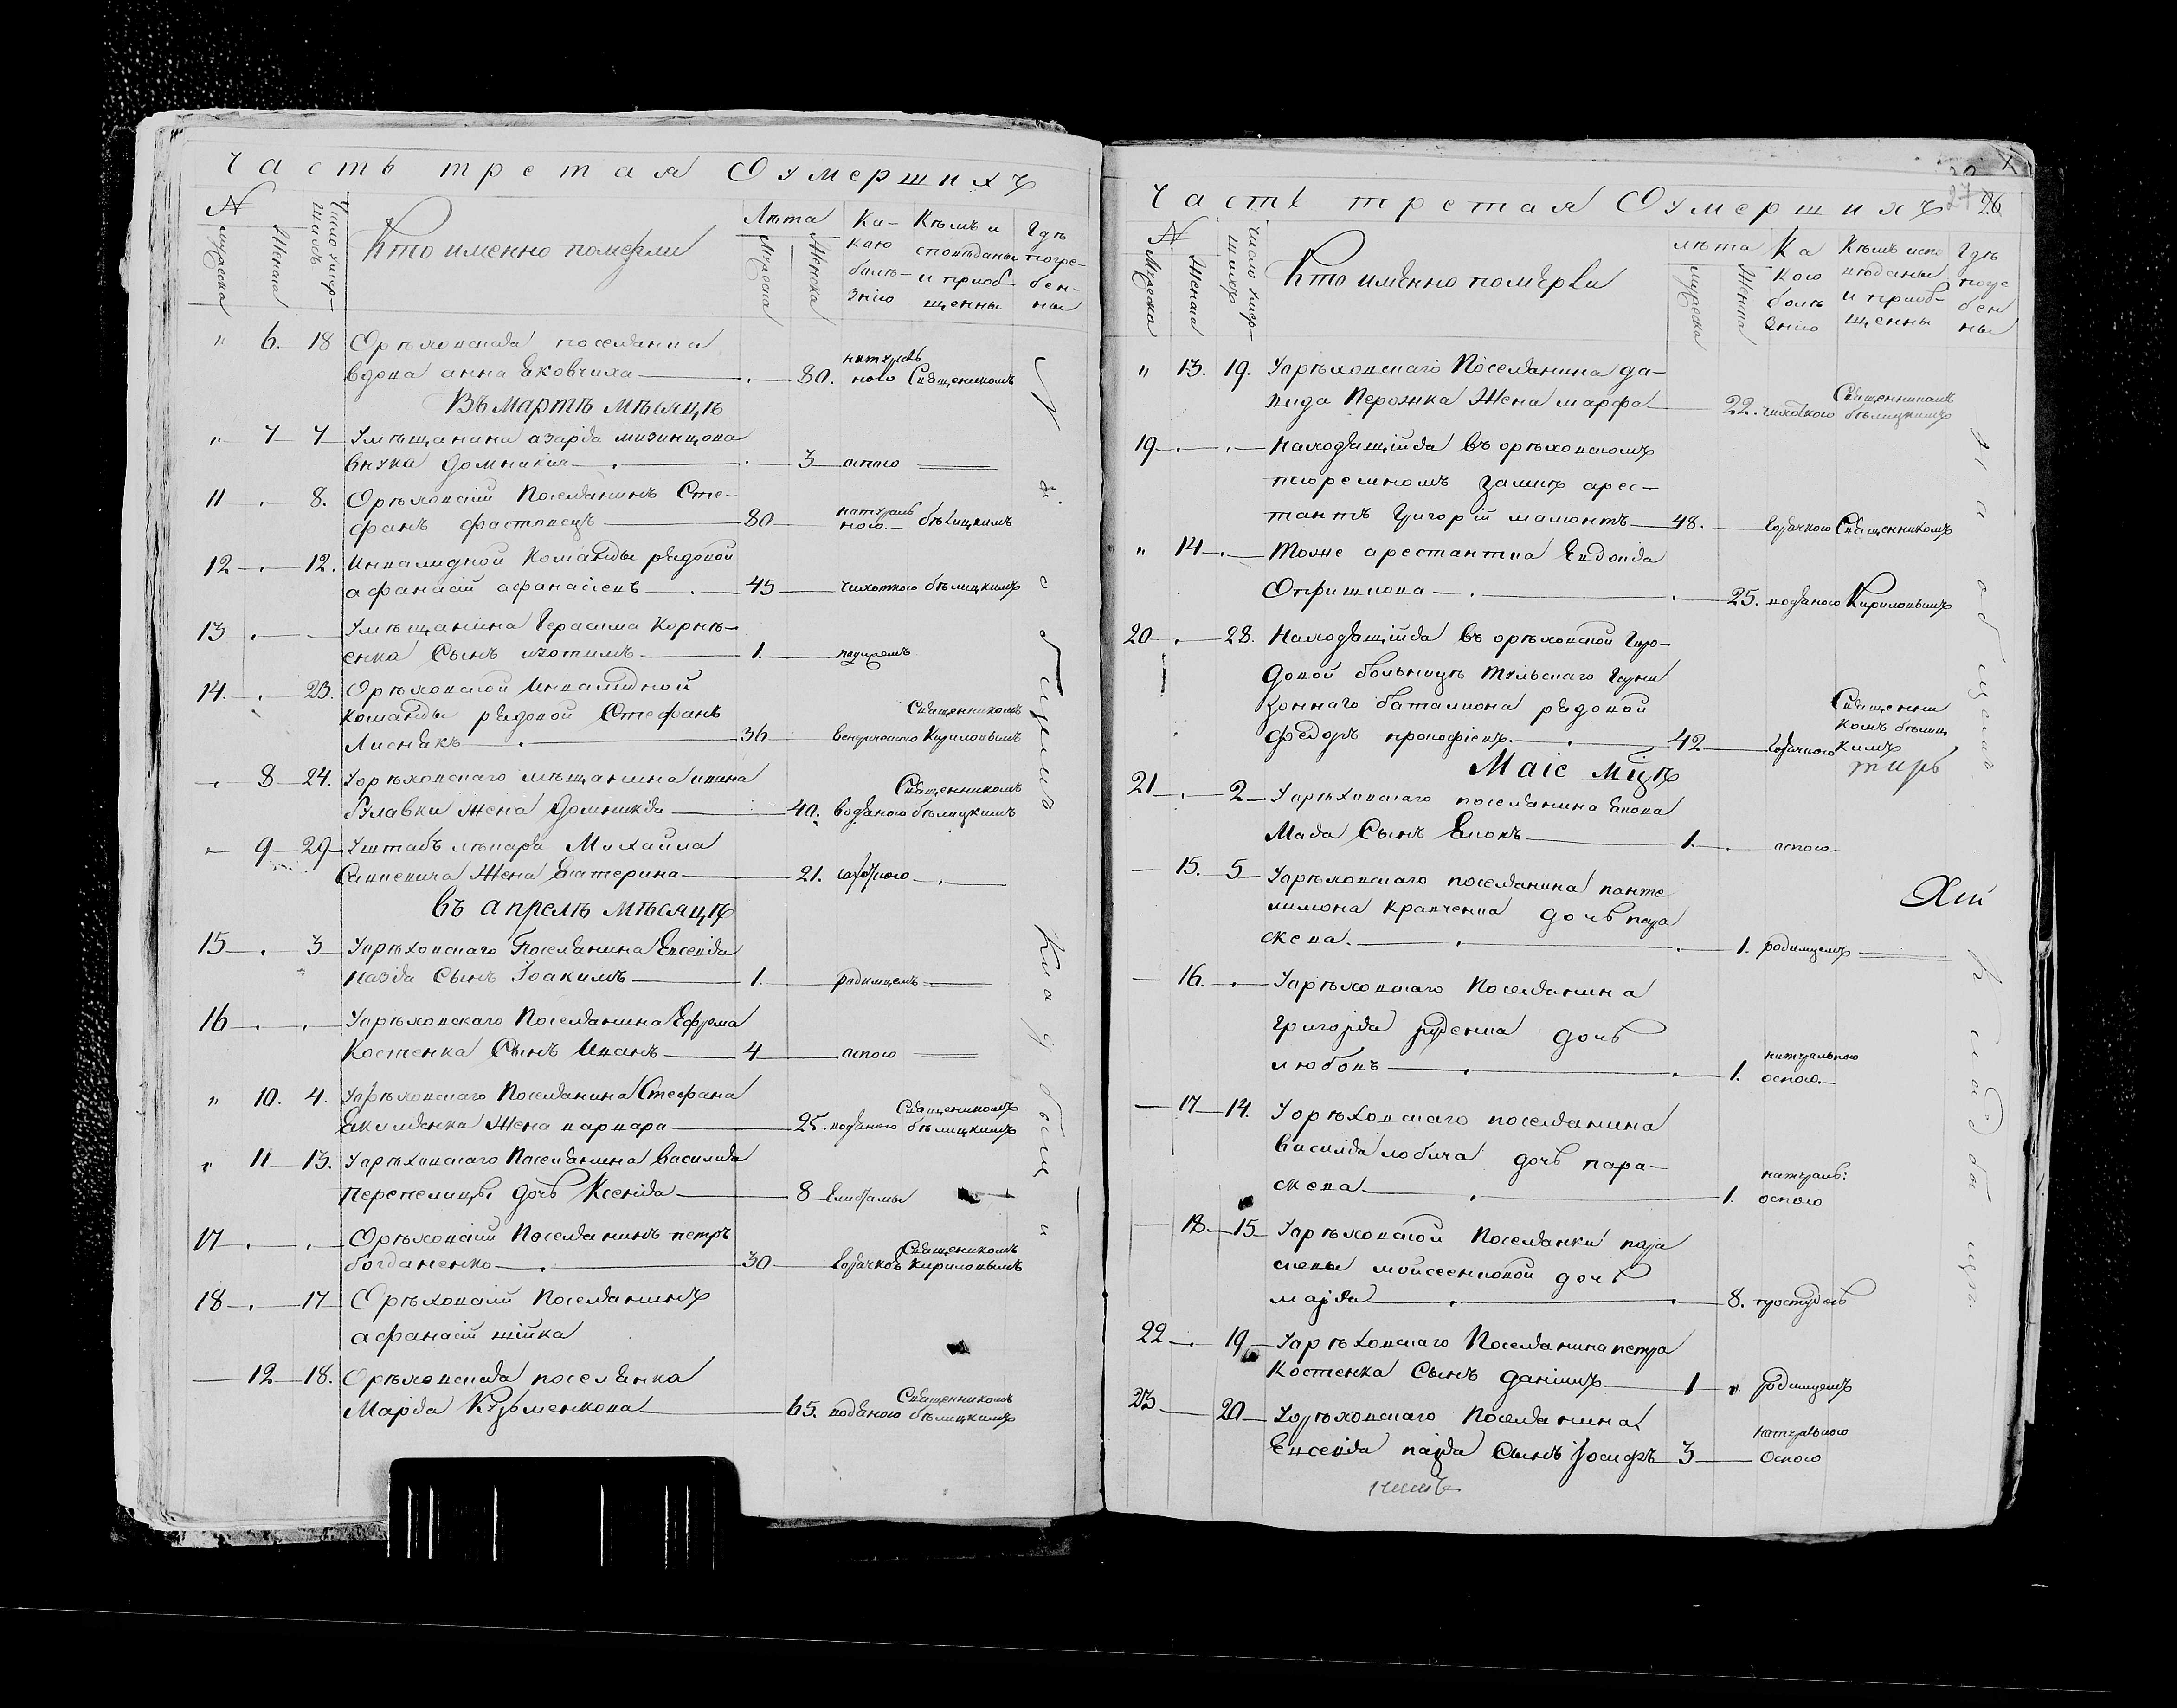 Часть третая О умершихъ
N
мужеска
Женска
Число умер-
шихъ
Кто именно померли
Лѣта
Мужеска
Женска
Ка-
кою
болѣ-
знію
Кѣмъ и
сповѣданы
и приоб
щенны
Гдѣ
погре-
бен-
ны
" 6. 18 Орѣховская поселянка
вдова анна Яковчиха 80. натураль
ного Священикомъ
Въ Мартѣ мѣсяцѣ
" 7 7 Умѣщанина азарія мизинцова
внука Домникия 3 оспою
11 . 8. Орѣховскій Поселянинъ Сте-
фанъ фастовецъ 80 натураль
ного. бѣлицкимъ
12 . 12. Инвалидной Команды рядовой
афанасій афанасіевъ 45 чихоткою бѣлицкимъ
13 . Умѣщанина Герасима Корнѣ-
енка Сынъ изотимъ 1.
14. . 23. Орѣховской Инвалидной
команды рядовой Стефанъ
Лиснякъ 36 Священникомъ
Кириловымъ
8 24. Уорѣховскаго мѣщанина ивана
булавки жена Домникія 40. водяною Священникомъ
бѣлицкимъ
9 29 Уштабъ лѣкаря Михайла
Жена Екатерина 21.
въ апрелѣ мѣсяцѣ
15 . 3 Уорѣховскаго Поселянина Евсевія
Сынъ Іоакимъ 1. родимцемъ
16 . . Уорѣховскаго Поселянина Ефрема
Костенка Сынъ Иванъ 4 оспою
" 10. 4. Уорѣховскаго Поселянина Стефана
Акименка Жена варвара 25. водяною Священикомъ
бѣлицкимъ
" 11 13. Уорѣховскаго Поселянина Василия
Перепелицы дочь Ксенія 8
17 . . Орѣховскій Поселянинъ петръ
богданенко 30 Священикомъ
Кириловымъ
18 . 17 Орѣховскій Поселянинъ
афанасій шійка
12 18. Орѣховская поселянка
Марія Кузьменкова 65. водяною Священникомъ
бѣлицкимъ
Часть третая О умершихъ 27 26
N
Мужеска
Женска
Число умер-
шихъ
Кто именно померли
лѣта
мужеска
Женска
Ка
кою
болѣ
знію
Кѣмъ испо
вѣданы
и приоб-
щенны
Гдѣ
погре
бен
ны
" 13. 19. Уорѣховскаго Поселянина да-
вида Перожка Жена марфа 22. чихоткою Священникомъ
бѣлицкимъ
19 . . Находящійся въ орѣховскомъ
тюремномъ замкѣ арес-
тантъ Григорій мамонтъ 48. горячкою Священникомъ
" 14 . Тоже арестантка Евдокія
25. водяною Кириловымъ
20 . 28. Находящійся въ орѣховской Горо-
довой больницѣ тульскаго Гарни
зоннаго баталиона рядовой
федоръ прокофіевъ. 42 горячкою Священни
комъ бѣлиц
кимъ
Маіе мцѣ
21 . 2 Уорѣховскаго поселянина
Сынъ 1. оспою
15. 5 Уорѣховскаго поселянина панте
лимона кравченка дочь пара
скева. 1. родимцемъ
16. . Уорѣховскаго Поселянина
Григорія руденка дочь
любовъ 1. натуральною
оспою.
17 14. Уорѣховскаго поселянина
василія лобача дочь пара-
скева 1. натураль:
оспою
18. 15 Уорѣховской Поселянки пара
скевы мойсеенковой дочь
марія 8. простудою
22 . 19 Уорѣховскаго Поселянина петра
Костенка Сынъ даніилъ 1 " родимцемъ
23 20 Уорѣховскаго Поселянина
Евсевія Сынъ Іосифъ 3 натуральною
Оспою